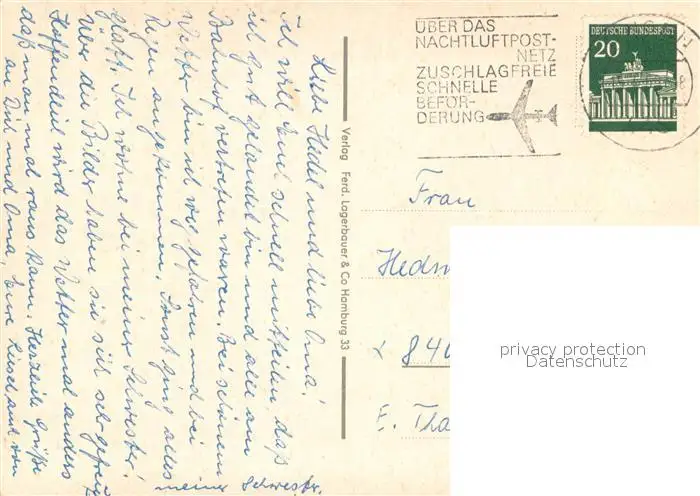 Liebe Hedel und liebe Oma!
ich will Euch schnell mitteilen, daß
ich gut gelandet bin und alle am
Bahnhof vertreten waren. Bei schönem
Wetter bin ich weg gefahren und bei
Regen angekommen. Sonst ging alles
glatt. Ich wohne bei meiner Schwester!
Über die Bilder haben sie sich sehr gefreut
Hoffendlich wird das Wetter mal anders
daß man mal raus kann. Herzliche Grüße
an Dich und Oma, Eure Liesel auch von
meiner Schwester.
Verlag Ferd. Lagerbauer & Co Hamburg 33
ÜBER DAS
NACHTLUFTPOST-
NETZ
ZUSCHLAGFREIE
SCHNELLE
BEFÖR-
DERUNG
DEUTSCHE BUNDESPOST
20
Frau
Hedw
840
E. Tha
privacy protection
Datenschutz